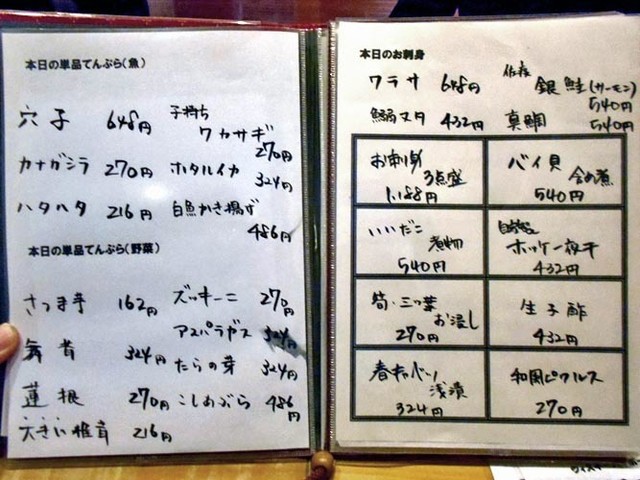 本日の単品てんぷら(魚)
穴子 648円
子持ち
ワカサギ
270円
カナガシラ 270円
ホタルイカ 324円
ハタハタ 216円
白魚かき揚げ
486円
本日の単品てんぷら(野菜)
さつま芋 162円
ズッキーニ 270円
アスパラガス 324円
舞茸 324円
たらの芽 324円
蓮根 270円
こしあぶら 486円
大きい椎茸 216円
本日のお刺身
ワラサ 648円
佐渡
銀鮭(サーモン)
540円
鰯タタ 432円
真鯛 540円
お刺身
3点盛
1,188円
バイ貝
含め煮
540円
いいだこ
煮物
540円
自家製
ホッケ一夜干
432円
筍・三つ葉
お浸し
270円
生子酢
432円
春キャベツ
浅漬
324円
和風ピクルス
270円